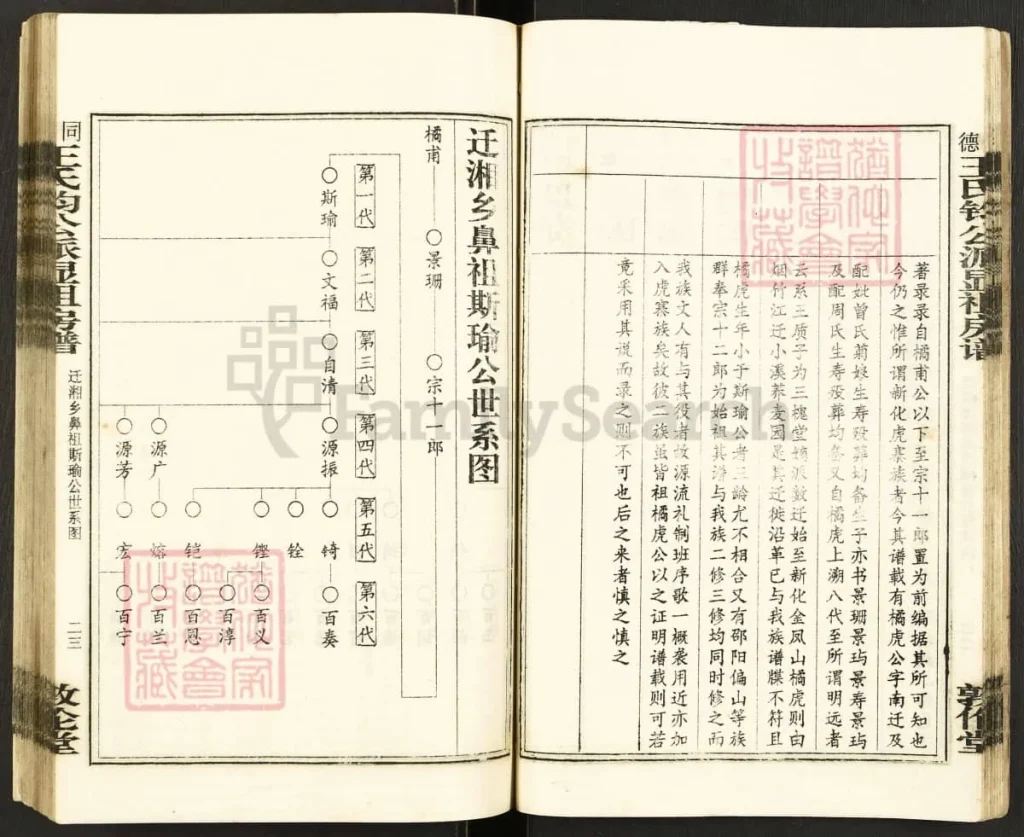 著录录自橘甫公以下至宗十一郎置为前编据其所可知也
今仍之惟所谓新化虎寨族者今其谱载有橘虎公字南迁及
配妣曾氏菊娘生寿殁葬均备生子亦书景珊景玙景寿景玙
及配周氏生寿殁葬均备又自橘虎上溯八代至所谓明远者
云系王质子为三槐堂嫡派数迁始至新化金凤山橘虎则由
烟竹江迁小溪荞麦园是其迁徙沿革已与我族谱牒不符且
橘虎生年小于斯瑜公者三龄尤不相合又有邵阳偏山等族
群奉宗十二郎为始祖其谱与我族二修三修均同时修之而
我族文人有与其役者故源流礼制班序歌一概袭用近亦加
入虎寨族矣故彼二族虽皆祖橘虎公以之证明谱载则可若
竟采用其说而录之则不可也后之来者慎之慎之
迁湘乡鼻祖斯瑜公世系图
橘甫
景珊
宗十一郎
第一代
第二代
第三代
第四代
第五代
第六代
斯瑜
文福
自清
源振
锜
百奏
铨
铿
百义
百淳
铠
百恩
源广
熔
百兰
源芳
宏
百宁
迁湘乡鼻祖斯瑜公世系图
二三
敦伦堂
FamilySearch